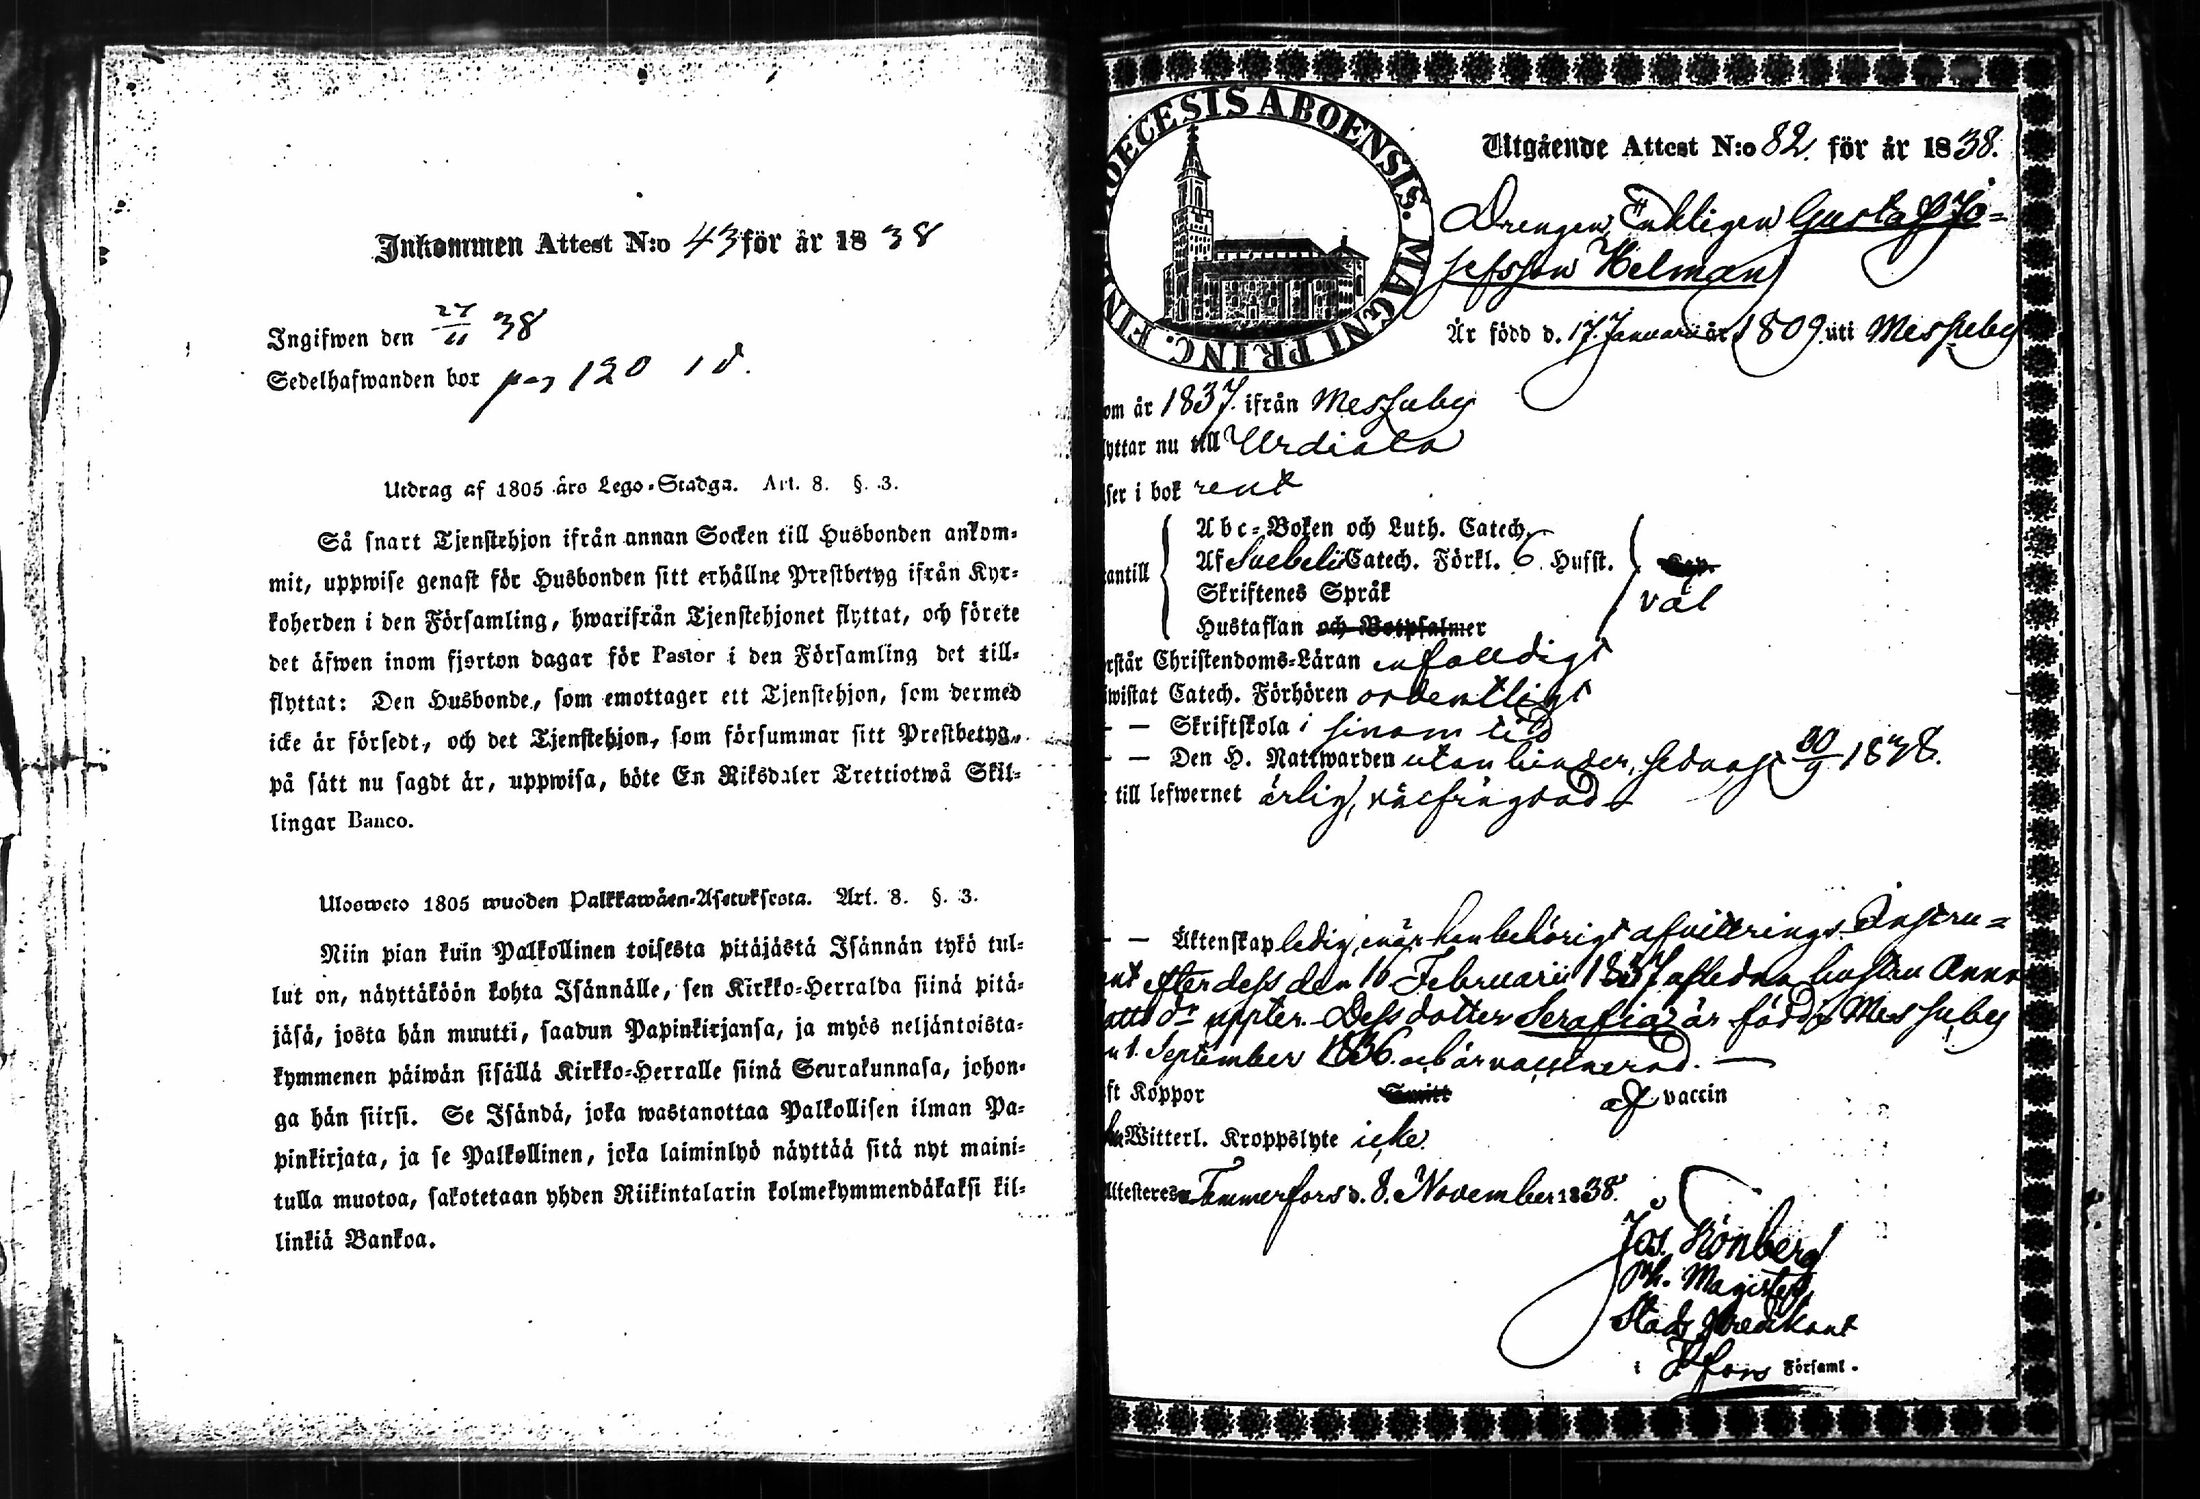 Inkommen Attest N:o 43 för år 1838
Ingifwen den 27/11 38
Sedelhafwanden bor pag 120
Utdrag af 1805 års Lego-Stadga. Art. 8. §. 3.
Så snart Tjenstehjon ifrån annan Socken till Husbonden ankom-
mit, uppwise genast för Husbonden sitt erhållne Prestbetyg ifrån Kyr-
koherden i den Församling, hwarifrån Tjenstehjonet flyttat, och förete
det äfwen inom fjorton dagar för Pastor i den Församling det till-
flyttat: Den Husbonde, som emottager ett Tjenstehjon, som dermed
icke är försedt, och det Tjenstehjon, som försummar sitt Prestbetyg,
på sätt nu sagdt är, uppwisa, böte En Riksdaler Trettiotwå Skil-
lingar Banco.
Ulosweto 1805 wuoden Palkkawäen-Asetuksesta. Art. 8. §. 3.
Niin pian kuin Palkollinen toisesta pitäjästä Isännän tykö tul-
lut on, näyttäköön kohta Isännälle, sen Kirkko-Herralda siinä pitä-
jäsä, josta hän muutti, saadun Papinkirjansa, ja myös neljäntoista-
kymmenen päiwän sisällä Kirkko-Herralle siinä Seurakunnasa, johon-
ga hän siirsi. Se Isändä, joka wastanottaa Palkollisen ilman Pa-
pinkirjata, ja se Palkollinen, joka laiminlyö näyttää sitä nyt maini-
tulla muotoa, sakotetaan yhden Riikintalarin kolmekymmendäkaksi kil-
linkiä Bankoa.
OECESIS ABOENSIS. MAGNI PRINC. FIN
Utgående Attest N:o 82. för år 1838.
Drengen, Enklingen Gustaf Jo-
sefsson Helman
Är född d. 17. Januarii år 1809. uti Messuby
om år 1837. ifrån Messuby
yttar nu till Urdiala
ser i bok rent
Abc-Boken och Luth. Catech.
Af Svebelii Catech. Förkl. 6 Husst.
antill
Skriftenes Språk
väl
Hustaflan och Botpsalmer
rstår Christendoms-Läran enfaldigt
iwistat Catech. Förhören ordentligt
- — Skriftskola i sinom tid
- — Den H. Nattwarden utan hinder, sednast 30/9 1838.
e till lefwernet ärlig, välfrägdad
- — Äktenskap ledig, när han behörigt afvittrings Instru-
ent efter dess den 10 Februarii 1837 afledna hustru Anna
atts dr uppter. Dess dotter Serafia är född i Messuby
n 1. September 1836. och är vaccinerad. —
ft Koppor Smitt af vaccin
Witterl. Kroppslyte icke
Attesteres Tammerfors d. 8. November 1838.
Jos. Grönberg
Ph. Magister,
Stads Predikant
i T:fors Församl.